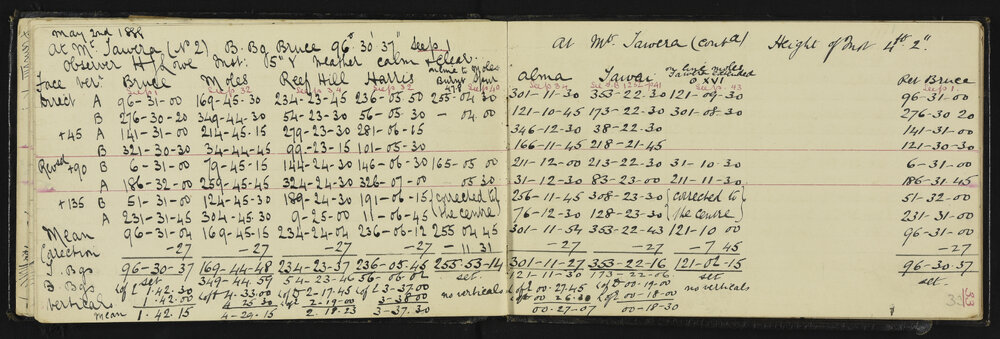 May 2nd 1888
At Mt. Tawera (No 2) B. Bg Bruce 96° 30' 37" See p 1
Observer H J Lowe Inst: 5" Y Weather calm & clear.
Face Ver. Bruce Moles Reef Hill Harris on line to Moles Spur
See p 1 See p. 32 See p 34 See p 32 See p 40
Direct A 96-31-00 169-45-30 234-23-45 236-05-50 255-04 30
B 276-30-20 349-44-30 54-23-30 56-05 30 - 04.00
+45 A 141-31-00 214-45-15 279-23-30 281-06-15
B 321-30-30 34-44-45 99-23-15 101-05-30
Revsed +90 B 6-31-00 79-45-15 144-24-30 146-06-30 165-05 00
A 186-32-00 259-45-45 324-24-30 326-07-00 05 30
+135 B 51-31-00 124-45-30 189-24-30 191-06-15 (corrected to
A 231-31-45 304-45.30 9-25-00 11-06-45 the centre)
Mean 96-31-04 169-45-15 234-24-04 236-06-12 255 04 45
Correction -27 -27 -27 -27 - 11 31
T. Bgs 96-30-37 169-44-48 234-23-37 236-05-45 255-53-14
B. Bgs set 349-44-59 54-23-46 56-06-06 set.
Verticals left 1.42.30 left 4-33-00 left 2-17-45 left 3-37-00 no verticals
1.42.00 4 25 30 left 2-19-00 3-38-00
mean 1.42.15 4-29-15 2.18-23 3-37.30
At Mt. Tawera (contd) Height of Inst 4ft 2".
Alma Tawai on line Moles Ret Bruce
See p. 43 See p 1
301-11-30 353-22-30 121-09-30 96-31-00
121-10-45 173-22-30 301-08-30 276-30 20
346-12-30 38-22-30 141-31-00
166-11-45 218-21-45 121-30-30
211-12-00 213-23-30 31-10-30 6-31-00
31-12-30 83-23-00 211-11-30 186-31-45
256-11-45 308-23-30 (corrected to) 51-32-00
76-12-30 128-23-30 (the centre) 231-31-00
301-11-54 353-22-43 121-10 00 96-31-00
-27 -27 -7 45 -27
301-11-27 353-22-16 121-02-15 96-30-37
121-11-30 173-22-06 set set.
left 00-27-45 left 00-19-00 no verticals
left 00 26-30 left 00-18-00
00-27-07 00-18-30
33